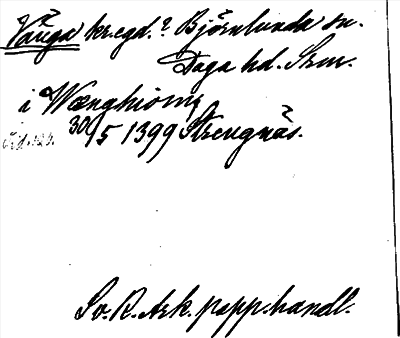 Vånga kr.egd.? Björnlunda sn.
Daga hd. Srm.
i Wænghiom
30/5 1399 Strengnäs.
Sv. R. Ark. papp.handl.